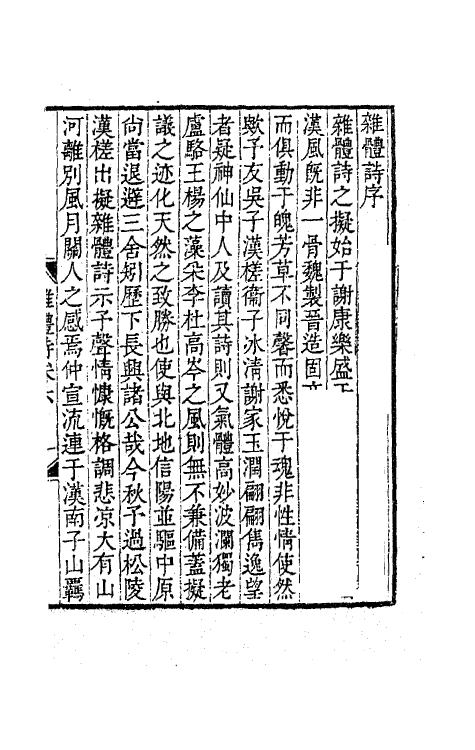 雜體詩序
雜體詩之擬始于謝康樂盛于
漢風旣非一骨魏製晉造固
而俱動于魄芳草不同馨而悉悅于魂非性情使然
歟予友吳子漢槎衞子冰清謝家玉潤翩翩雋逸望
者疑神仙中人及讀其詩則又氣體高妙波瀾獨老
盧駱王楊之藻朵李杜高岑之風則無不兼備蓋擬
議之迹化天然之致勝也使與北地信陽並驅中原
尙當退避三舍矧歷下長興諸公哉今秋予過松陵
漢槎出擬雜體詩示予聲情慷慨格調悲凉大有山
河離別風月關人之感焉仲宣流連于漢南子山羈
雜體詩